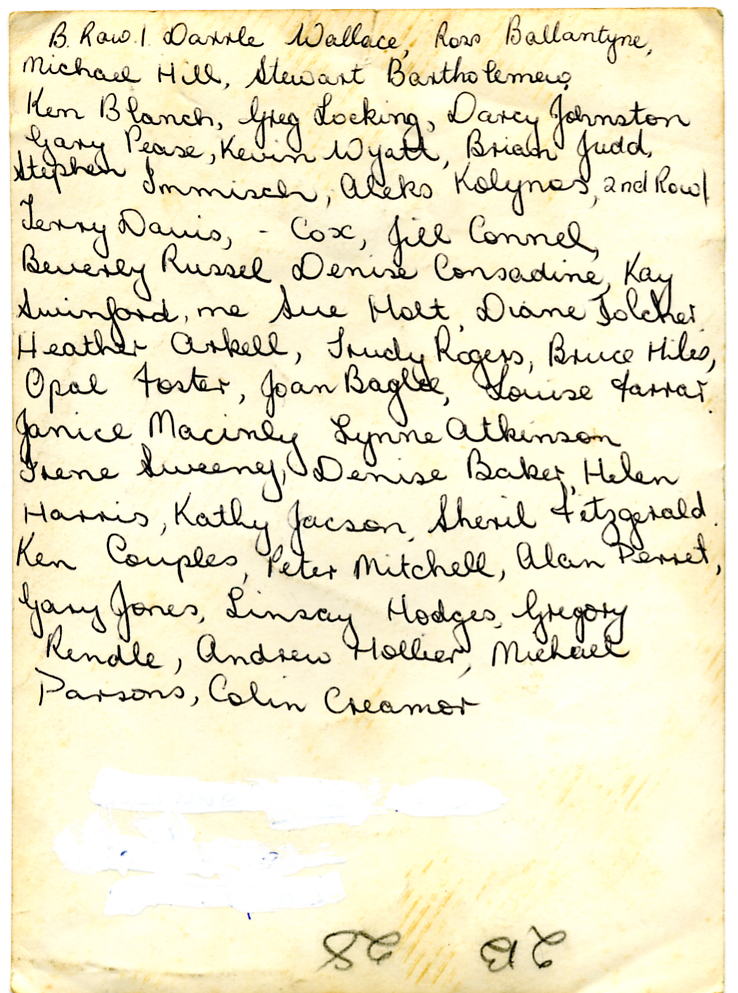 B. Row 1 Darrle Wallace, Ross Ballantyne,
Michael Hill, Stewart Bartholemew,
Ken Blanch, Greg Locking, Darcy Johnston
Gary Pease, Kevin Wyatt, Brian Judd,
Stephen Immisch, Aleks Kolynos, 2nd Row/
Terry Davis, - Cox, Jill Connel,
Beverly Russel Denise Consadine, Kay
Swinford, me Sue Holt, Diane Tolcher,
Heather Arkell, Trudy Rogers, Bruce Hiles,
Opal Foster, Joan Baglee, Louise Farrar,
Janice Macinley Lynne Atkinson
Irene Sweeney, Denise Baker, Helen
Harris, Kathy Jacson, Sheril Fitzgerald.
Ken Couples, Peter Mitchell, Alan Perret,
Gary Jones, Linsay Hodges, Gregory
Rendle, Andrew Hollier, Michael
Parsons, Colin Creamor
2B 28